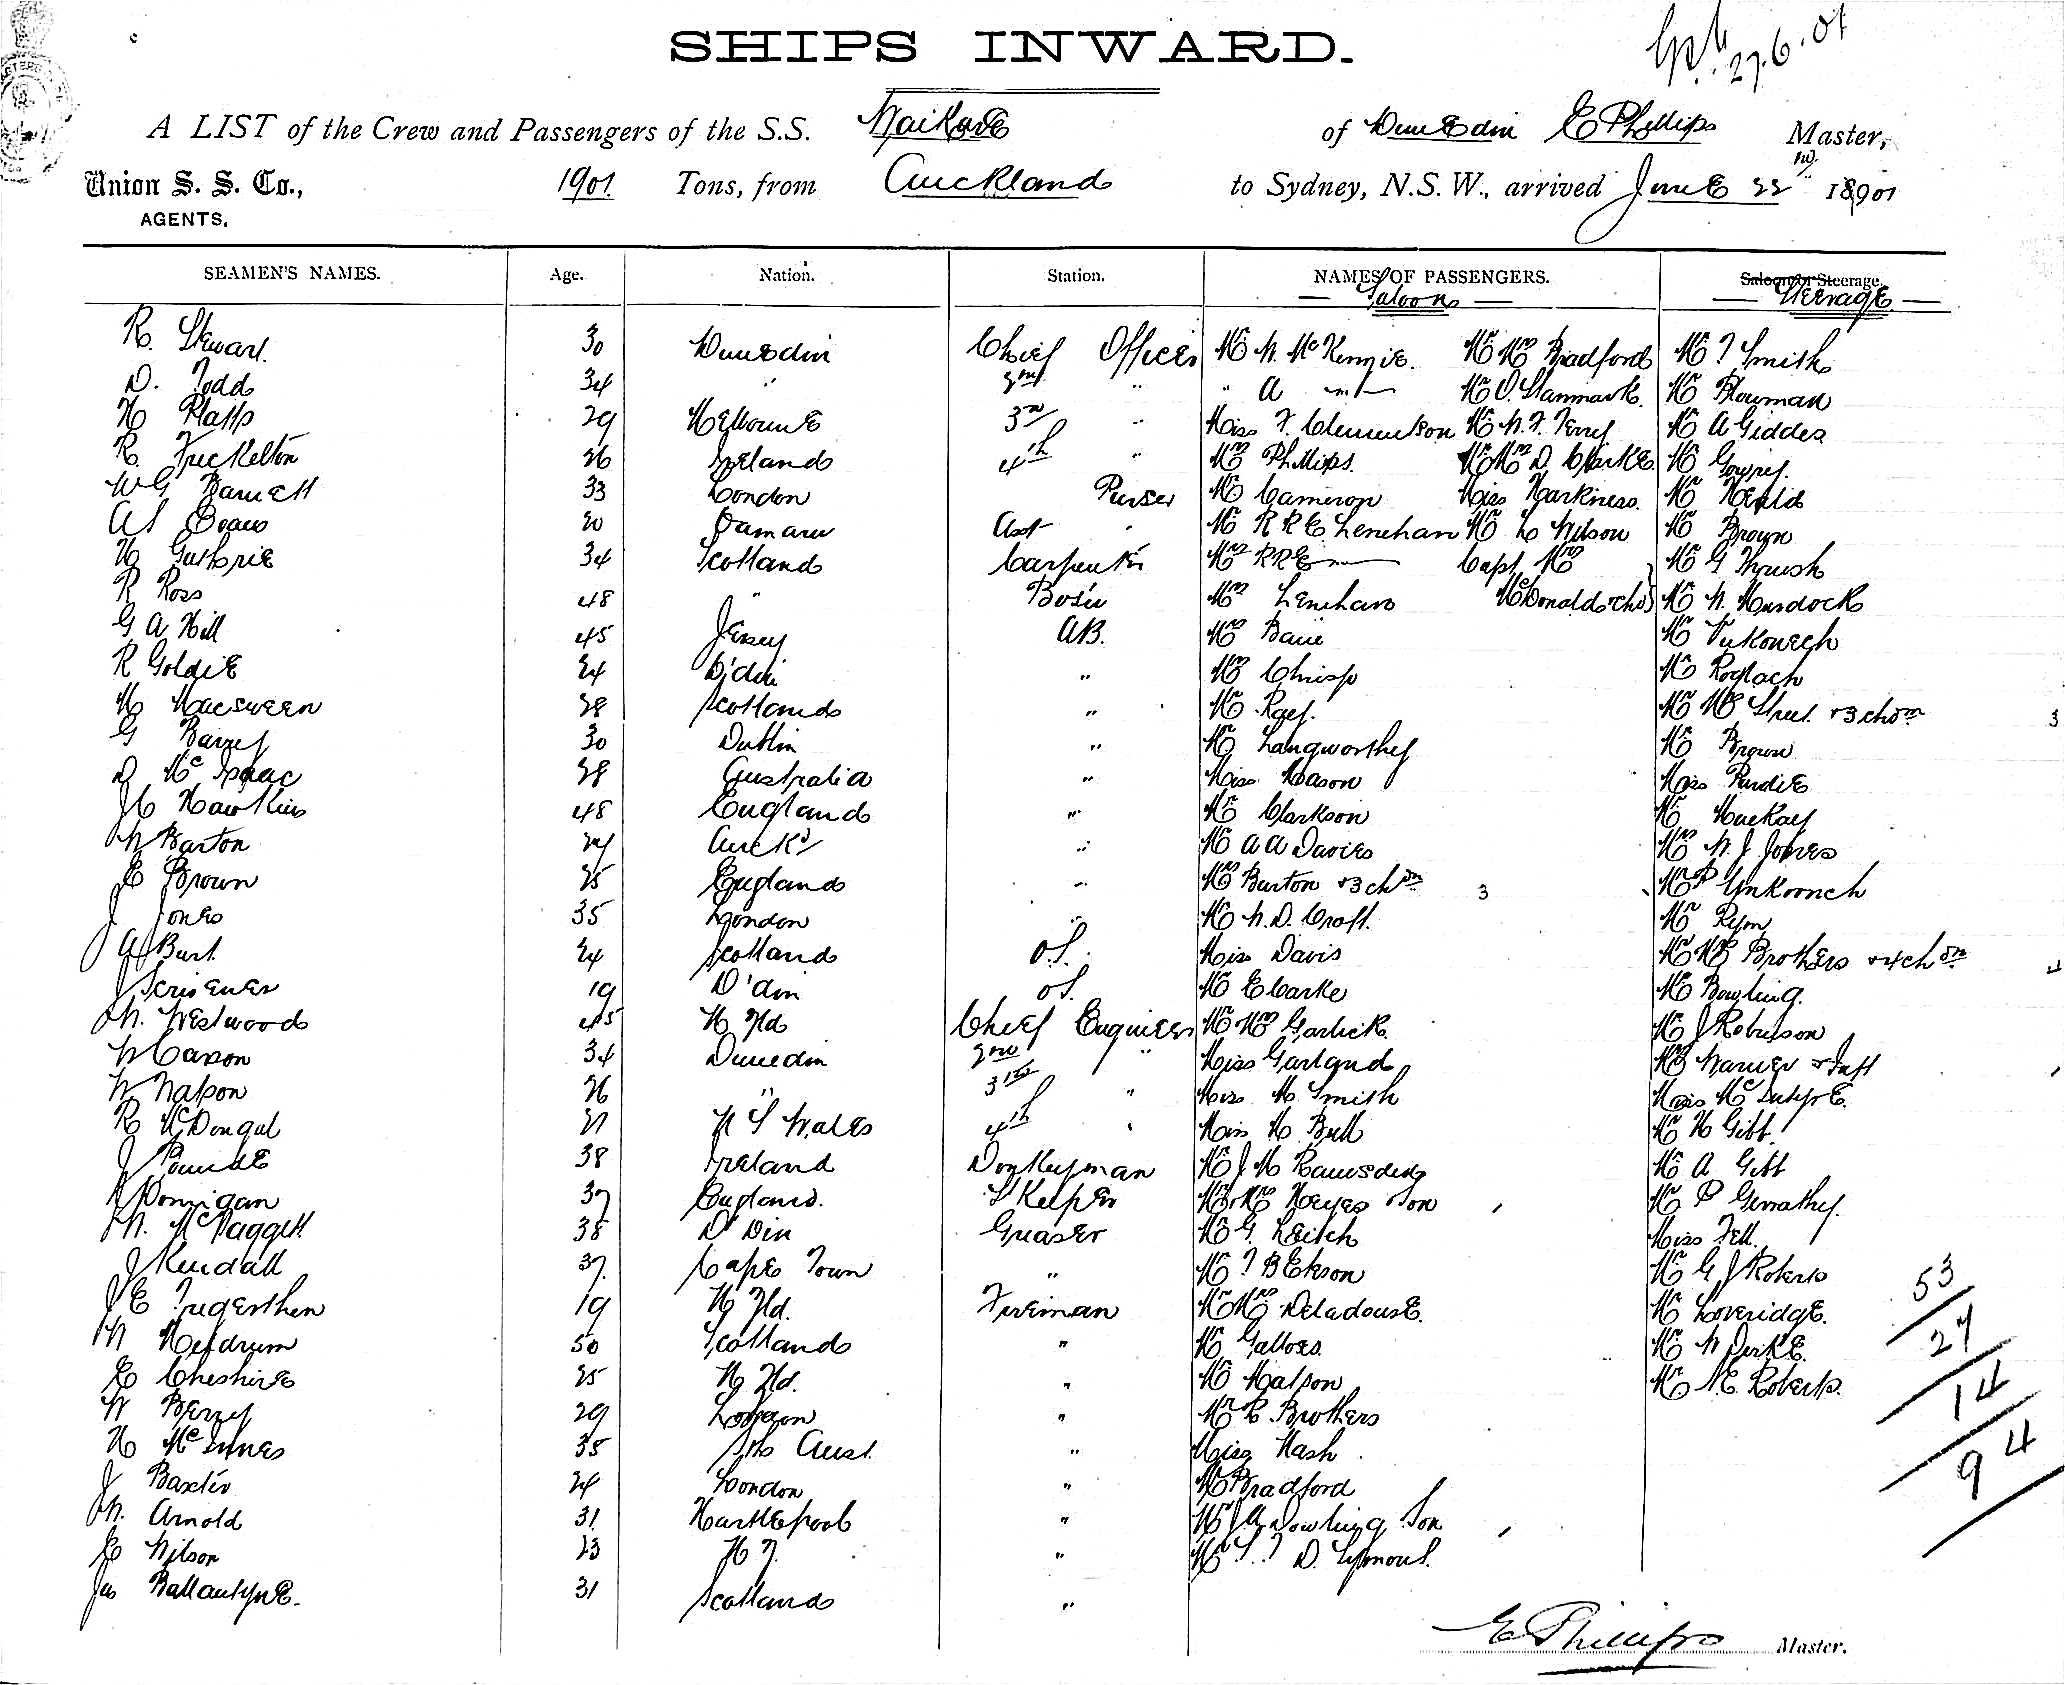 SHIPS INWARD.
27.6.01
A LIST of the Crew and Passengers of the S.S. of Dunedin E Phillips Master,
Union S. S. Co., 1901 Tons, from Auckland to Sydney, N.S.W., arrived June 22 1901
AGENTS.
SEAMEN'S NAMES. Age. Nation. Station. NAMES OF PASSENGERS. Saloon or Steerage.
Saloon Steerage
R. Stewart. 30 Dunedin Chief Officer Mr W. McKenzie. Mr Mrs Bradford Mr T Smith
D. Todd 34 " 2nd " " A —"— Mr O. Stanmark. Mr Plowman
H Platts 29 Melbourne 3rd " Miss F. Clementson Mr W. F. Terry Mr A Giddes
R. Freckelton 26 Ireland 4th " Mrs Phillips. Mr Mrs D. Clarke Mr
W G Barnett 33 London Purser Mr Cameron Miss Harkness. Mr Herald
A S Evans 20 Oamaru Asst " Mr R R E Lenehan Mr L Wilson Mr Brown
H Guthrie 34 Scotland Carpenter Mrs R R E — Capt Mrs Mr G Thrush
R Ross 48 " Bos'n Mrs Lenehan McDonald & chd Mr W. Murdock
G A Hill 45 Jersey AB. Mrs
R Goldie 24 D'din " Mrs Chrisp Mr
M Macsween 28 Scotland " Mr Mr Mrs 3 chdrn 3
G Barry 30 Dublin " Mr Langworthy Mr Brown
D McIsaac 28 Australia " Miss Mason Miss Purdie
Hawkins 48 England " Mr Clarkson Mr Mackay
W Barton 27 Auckd " Mr A A Davies Mrs W. J Jones
E Brown 25 England " Mrs Burton & 3 chdn 3
J Jones 35 London " Mr W. D. Croft. Mr Ryan
A Burt 24 Scotland O.S. Miss Davis Mr Mrs Brothers & 4 chdrn 4
J Scrivener 19 D'din O.S. Mr E Clarke Mr Bowling.
W. Westwood 45 N Zld Chief Engineer Mr Mrs Garlick Mr J Robinson
W Caxon 34 Dunedin 2nd " Miss Garland Mrs Warner & Inft
W Watson 26 " 3rd " Miss M Smith Miss McIntyre.
R McDougal 27 N S Wales 4th " Miss M Bull Mr H Gibb
J 38 Ireland Donkeyman Mr J M Ramsden Mr A Gibb
37 England. S Keeper Mr & Mrs Keyes & Son Mr P Gerrathy.
W. McTaggett 38 D'Din Greaser Mr G. Leitch Miss Fell.
J Kendall 37. Cape Town " Mr T B Ekson Mr G J Roberts 53
J E Tregerthen 19 N Zld. Fireman Mr Mrs Deladouse. Mr Loveridge.
W Meldrum 50 Scotland " Mr Mr W 27
E Cheshire 25 N Zld. " Mr Watson Mr N. E. Roberts. 14
W Berry 29 London " Mr R Brothers
H McInnes 35 Sth Aust. " Miss Nash 94
J Baxter 24 London " Mr Bradford
W. Arnold 31 Hartlepool " Mr J. A. Dowling Son
E Wilson 23 N Z. " Mr S. T D. Seymour.
Jas Ballantyne. 31 Scotland "
E Phillips Master.